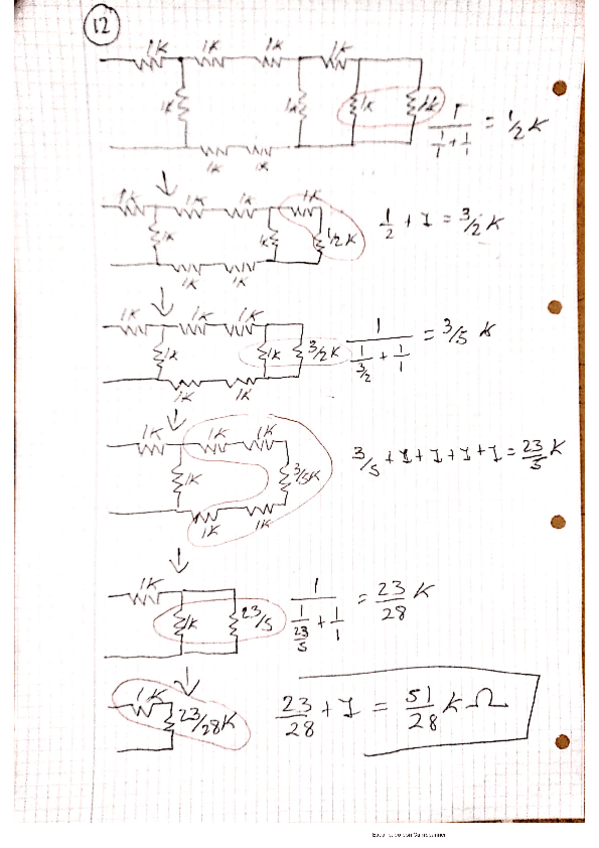 12
1K 1K 1K 1K
1K 1K 1K 1K
1/(1/1 + 1/1) = 1/2 K
1K 1K
1K 1K 1K 1K
1K 1K 1/2K
1/2 + 1 = 3/2 K
1K 1K
1K 1K 1K
1K 1K 3/2K
1/(1/(3/2) + 1/1) = 3/5 K
1K 1K
1K 1K 1K
1K 3/5K
3/5 + 1 + 1 + 1 + 1 = 23/5 K
1K 1K
1K
1K 23/5
1/(1/(23/5) + 1/1) = 23/28 K
1K
23/28K
23/28 + 1 = 51/28 kΩ